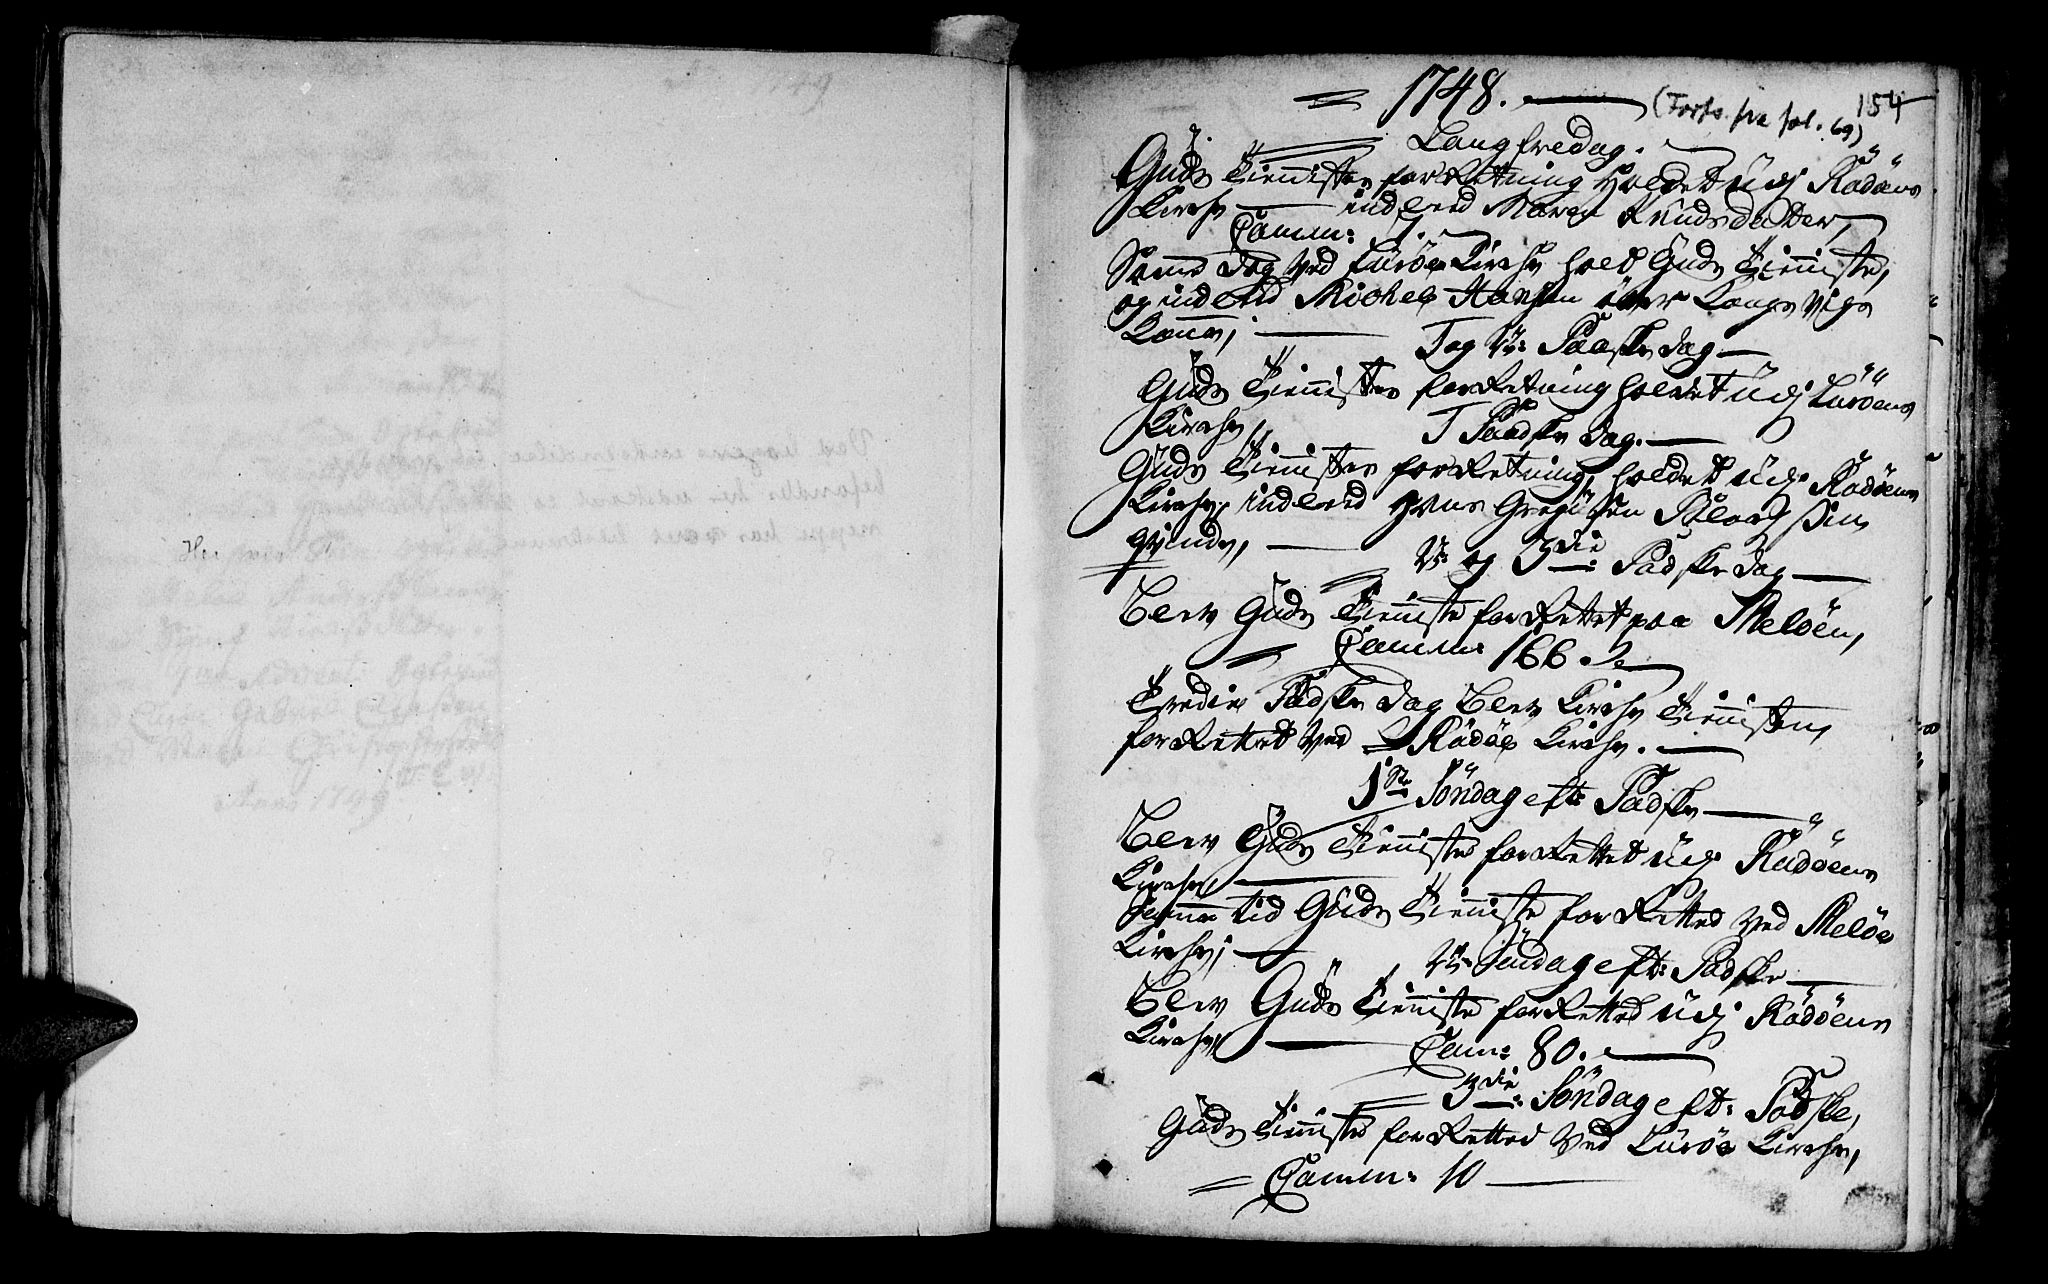 1748.
154
(Forts. fra fol. 69)
Langfredag.
Guds Tienistes forRetning Holdet udj Rödöens
Kirche indleed Maren Knudsdatter,
Comm: 51.
Samme dag ved Luröe Kirche holt Guds Tieniste,
og indleed Michel Hansen Langs Vigs
Kone,
Paaske dag
Guds Tienistes forRetning holdet udj Luröens
Kirche,
Paaske dag.
Guds Tienistes forRetning, holdet udj Rödöens
Kirche, indleed Hans
qvinde,
og 3die Paaske dag
Blev Guds Tieniste forRettet paa Melöen,
Comm: 166.
Tredie Paaske dag Blev Kirche Tienisten,
forRettet ved Rödöe Kirche.
1ste Söndag eft: Paaske
Blev Guds Tieniste forRettet udj Rödöens
Kirche,
Samme tid Guds Tieniste forRetted ved Melöe
Kirche,
Söndag eft: Paaske
Blev Guds Tieniste forRetted udj Rödöens
Kirche,
Com: 80.
3die Söndag eft: Paaske,
Guds Tieniste forRetted ved Luröe Kirche,
Comm: 10